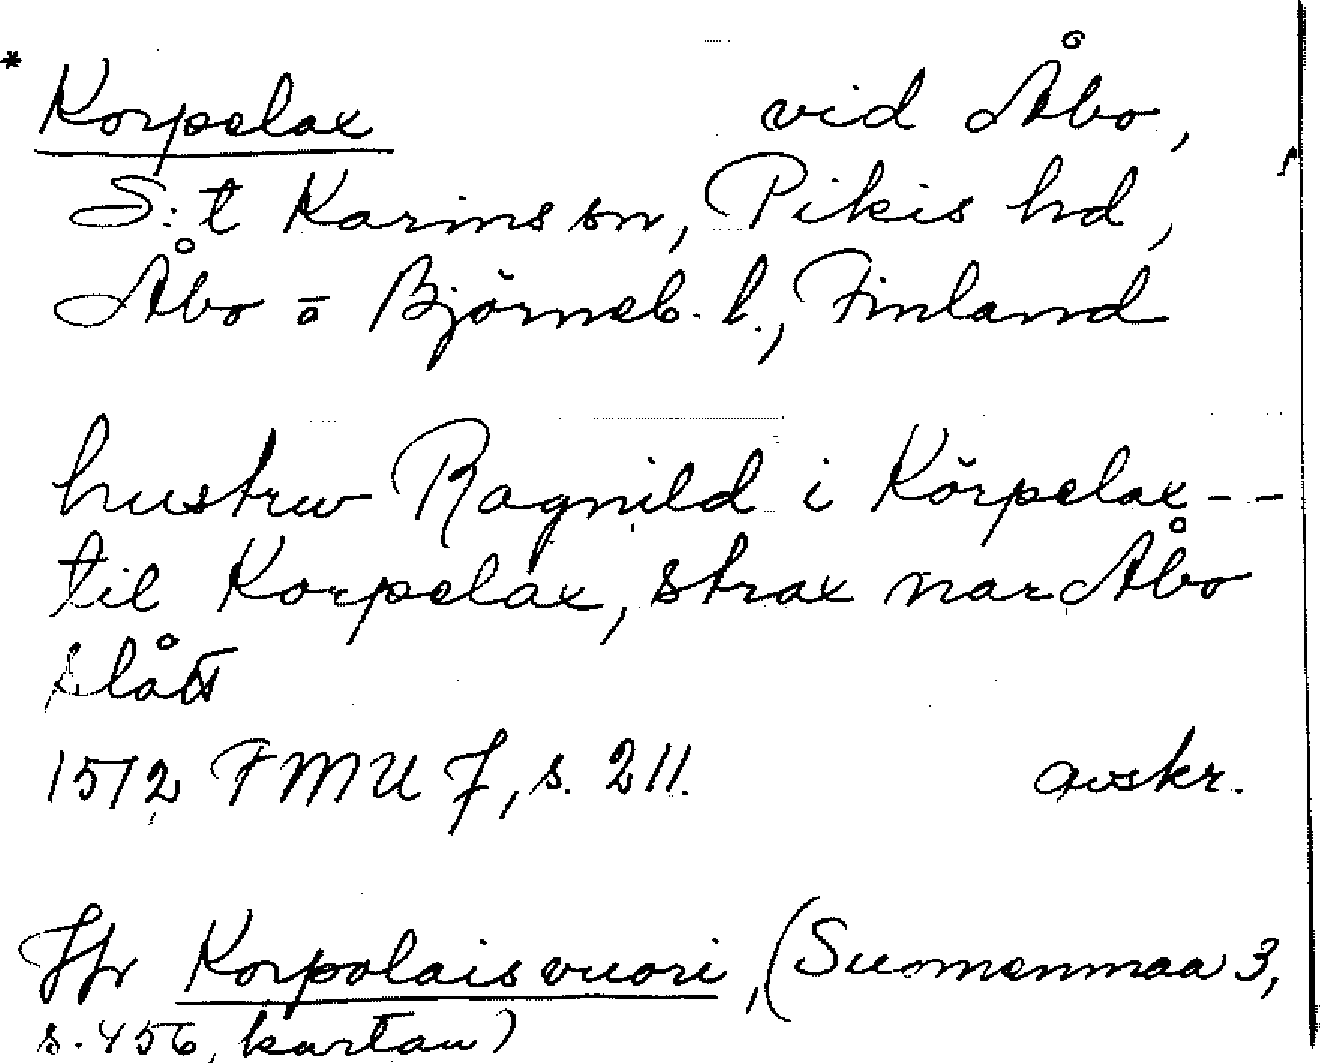 * Korpelax vid Åbo,
S:t Karins sn, Pikis hd,
Åbo o Björneb. l., Finland
hustrw Ragnild i Körpelax--
til Korpelax, strax nar Åbo
slått
1512 FMU 7, s. 211. avskr.
Jfr Korpolaisvuori, (Suomenmaa 3,
s. 456, kartan)